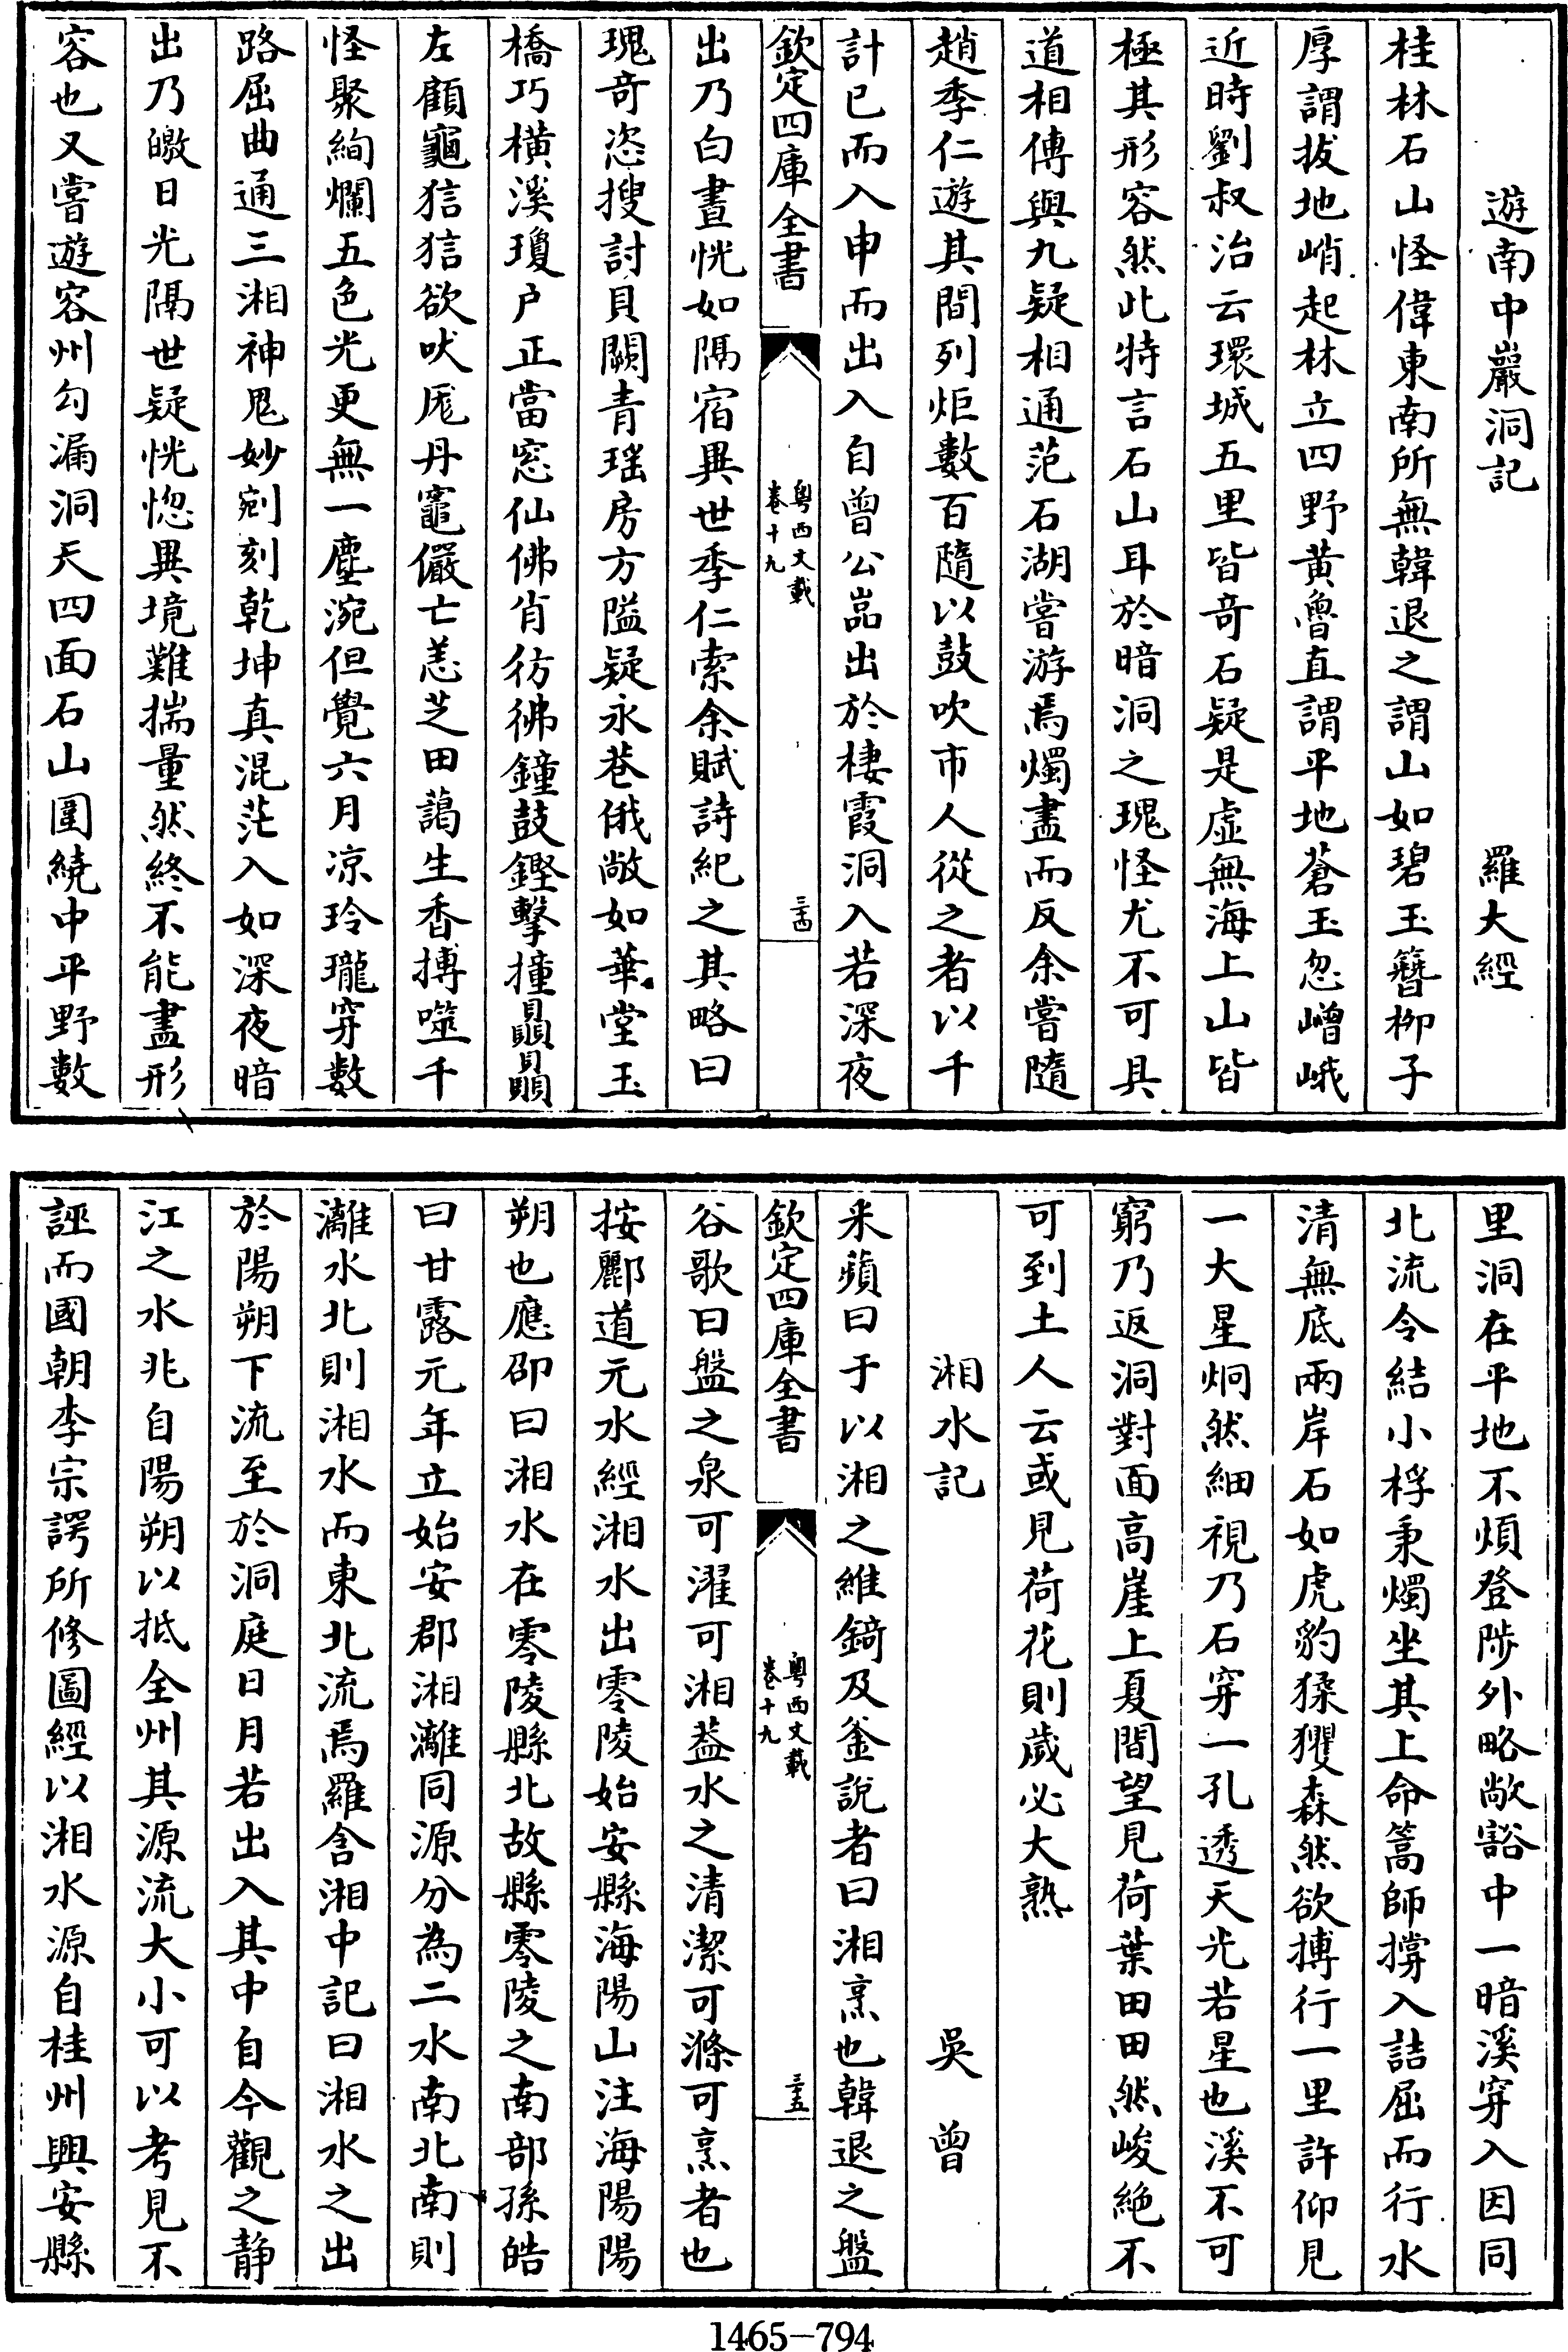 遊南中巖洞記　羅大經
桂林石山怪偉東南所無韓退之謂山如碧玉簪柳子
厚謂拔地峭起林立四野黄魯直謂平地蒼玉忽嶒峨
近時劉叔治云環城五里皆奇石疑是虛無海上山皆
極其形容然此特言石山耳於暗洞之瑰怪尤不可具
道相傳與九疑相通范石湖嘗游焉燭盡而反余嘗隨
趙季仁遊其間列炬數百隨以鼓吹市人從之者以千
計已而入申而出入自曾公嵓出於棲霞洞入若深夜
欽定四庫全書
粤西文載
卷十九
三十四
出乃白晝恍如隔宿異世季仁索余賦詩紀之其略曰
瑰奇恣搜討貝闕青瑶房方隘疑永巷俄敞如華堂玉
橋巧横溪瓊户正當窓仙佛肖彷彿鐘鼓鏗擊撞贔贔
左顧龜狺狺欲吠厖丹竈儼亡恙芝田藹生香搏噬千
怪聚絢爛五色光更無一塵涴但覺六月凉玲瓏穿數
路屈曲通三湘神鬼妙剜刻乾坤真混茫入如深夜暗
出乃皦日光隔世疑恍惚異境難揣量然終不能盡形
容也又嘗遊容州勾漏洞天四面石山圍繞中平野數
里洞在平地不煩登陟外略敞豁中一暗溪穿入因同
北流令結小桴秉燭坐其上命篙師撐入詰屈而行水
清無底兩岸石如虎豹猱玃森然欲搏行一里許仰見
一大星炯然細視乃石穿一孔透天光若星也溪不可
窮乃返洞對面高崖上夏間望見荷葉田田然峻絶不
可到土人云或見荷花則歲必大熟
湘水記　吳曾
采蘋曰于以湘之維錡及釜說者曰湘烹也韓退之盤
欽定四庫全書
粤西文載
卷十九
三十五
谷歌曰盤之泉可濯可湘葢水之清潔可滌可烹者也
按酈道元水經湘水出零陵始安縣海陽山注海陽陽
朔也應卲曰湘水在零陵縣北故縣零陵之南部孫皓
曰甘露元年立始安郡湘灕同源分為二水南北南則
灕水北則湘水而東北流焉羅含湘中記曰湘水之出
於陽朔下流至於洞庭日月若出入其中自今觀之静
江之水兆自陽朔以抵全州其源流大小可以考見不
誣而國朝李宗諤所修圖經以湘水源自桂州興安縣
1465-794